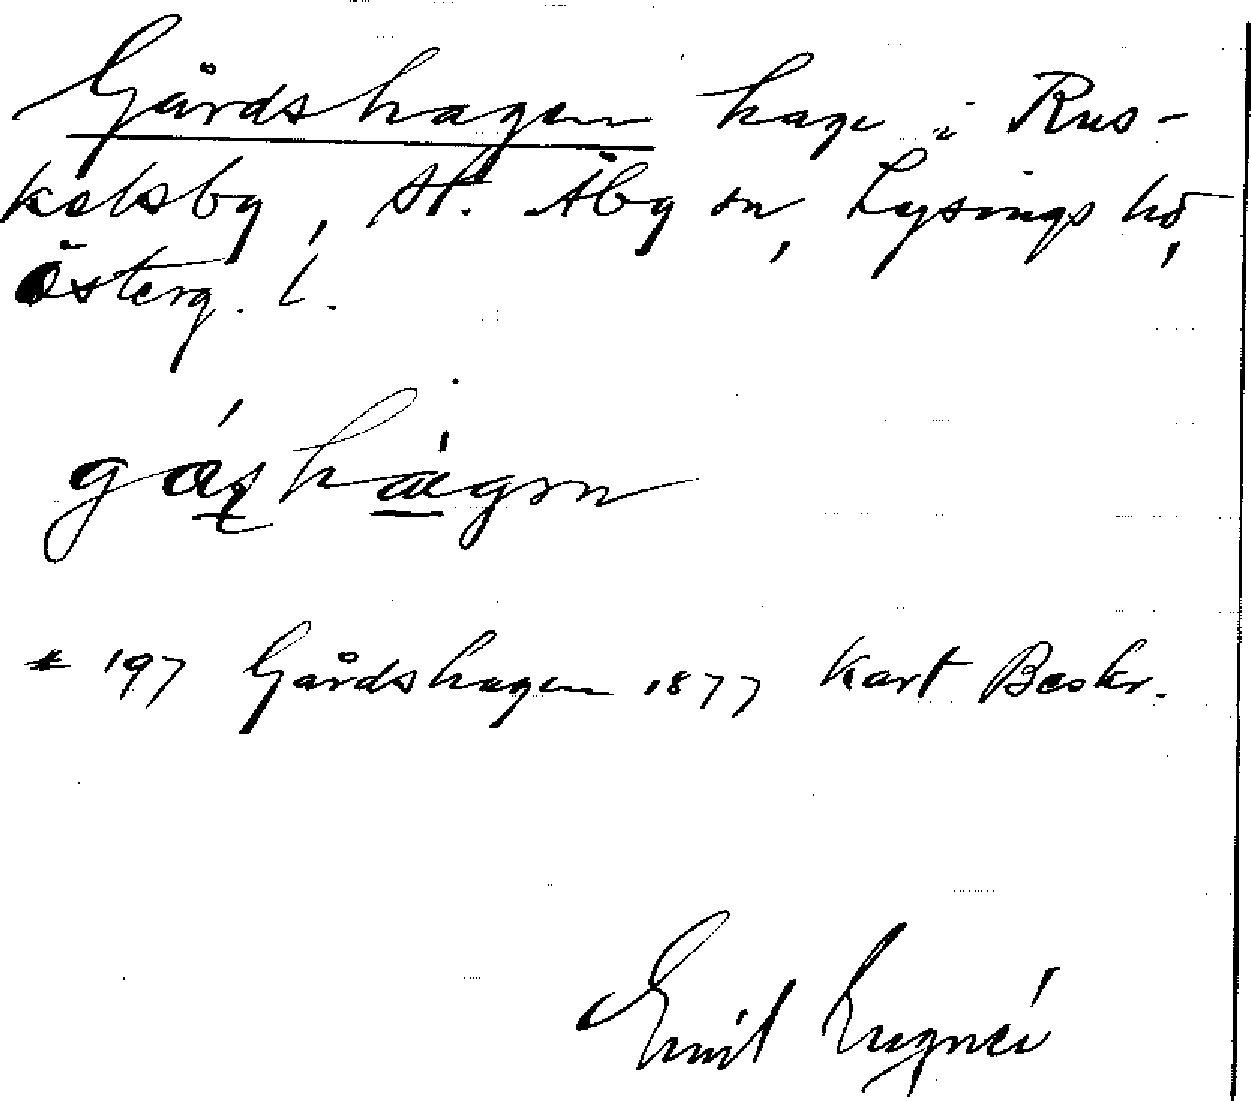 Gårdshagen hage i Rus-
kelsby, St. Åby sn, Lysings hd,
Österg. l.
* 197 Gårdshagen 1877 Kart Beskr.
Emil